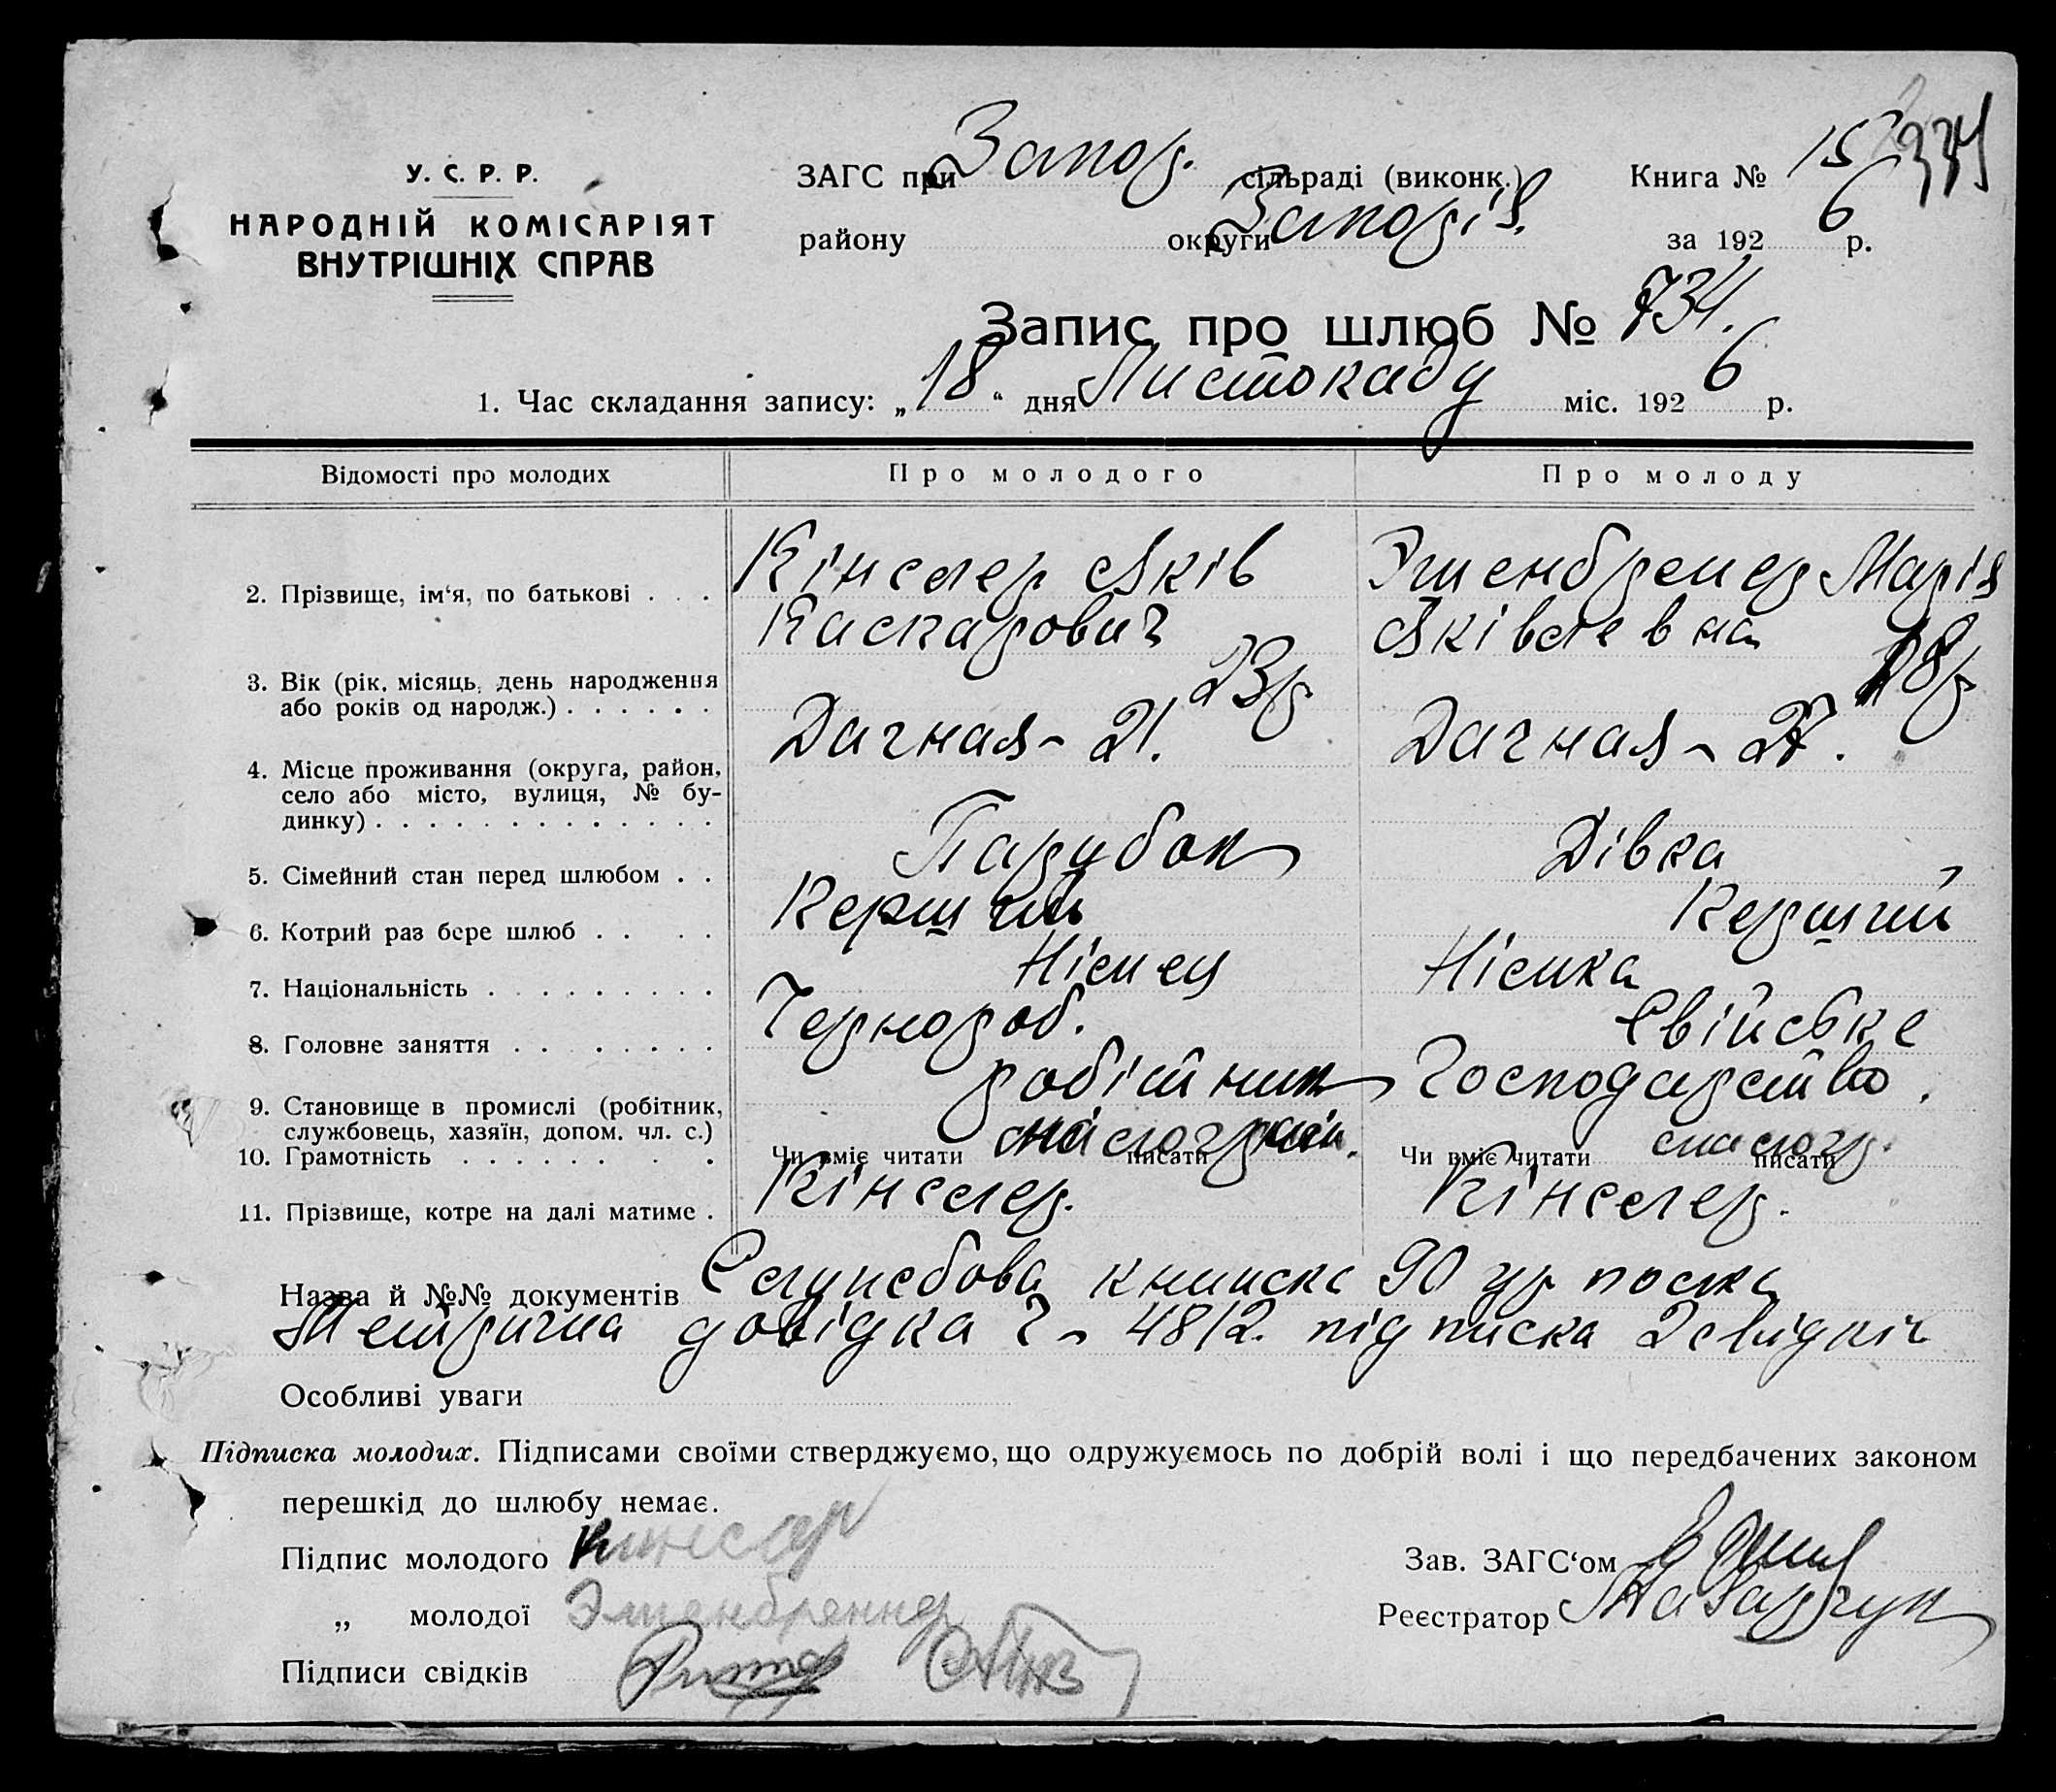 У. С. Р. Р.
НАРОДНІЙ КОМІСАРІЯТ
ВНУТРІШНІХ СПРАВ
ЗАГС при Запор. сільраді (виконк.) Книга № 15
району округи Запоріз. за 1926 р.
Запис про шлюб № 734.
1. Час складання запису: „18“ дня Листопаду міс. 1926 р.
Відомості про молодих Про молодого Про молоду
2. Прізвище, ім‘я, по батькові . . . Кінслер Яків Марія
Каспарович Яківлевна
3. Вік (рік, місяць, день народження
або років од народж.) . . . . . . 23р 18р
4. Місце проживання (округа, район,
село або місто, вулиця, № бу-
динку) . . . . . . . . . . . . . Дачная - 21. Дачная - 27.
5. Сімейний стан перед шлюбом . . Парубок Дівка
6. Котрий раз бере шлюб . . . . Перший Перший
7. Національність . . . . . . . . . Німец Німка
8. Головне заняття . . . . . . . . Чернороб. Свійське
9. Становище в промислі (робітник,
службовець, хазяїн, допом. чл. с.) робітник Господарство.
10. Грамотність . . . . . . . . Чи вміє читати писати Чи вміє читати писати
11. Прізвище, котре на далі матиме . Кінслер. Кінслер.
Назва й №№ документів Служебова книжка 90
Метрична довідка ч - 4812. підписка
Особливі уваги
Підписка молодих. Підписами своїми стверджуємо, що одружуємось по добрій волі і що передбачених законом
перешкід до шлюбу немає.
Підпис молодого Кинслер Зав. ЗАГС‘ом
„ молодої Реєстратор Назарчук
Підписи свідків